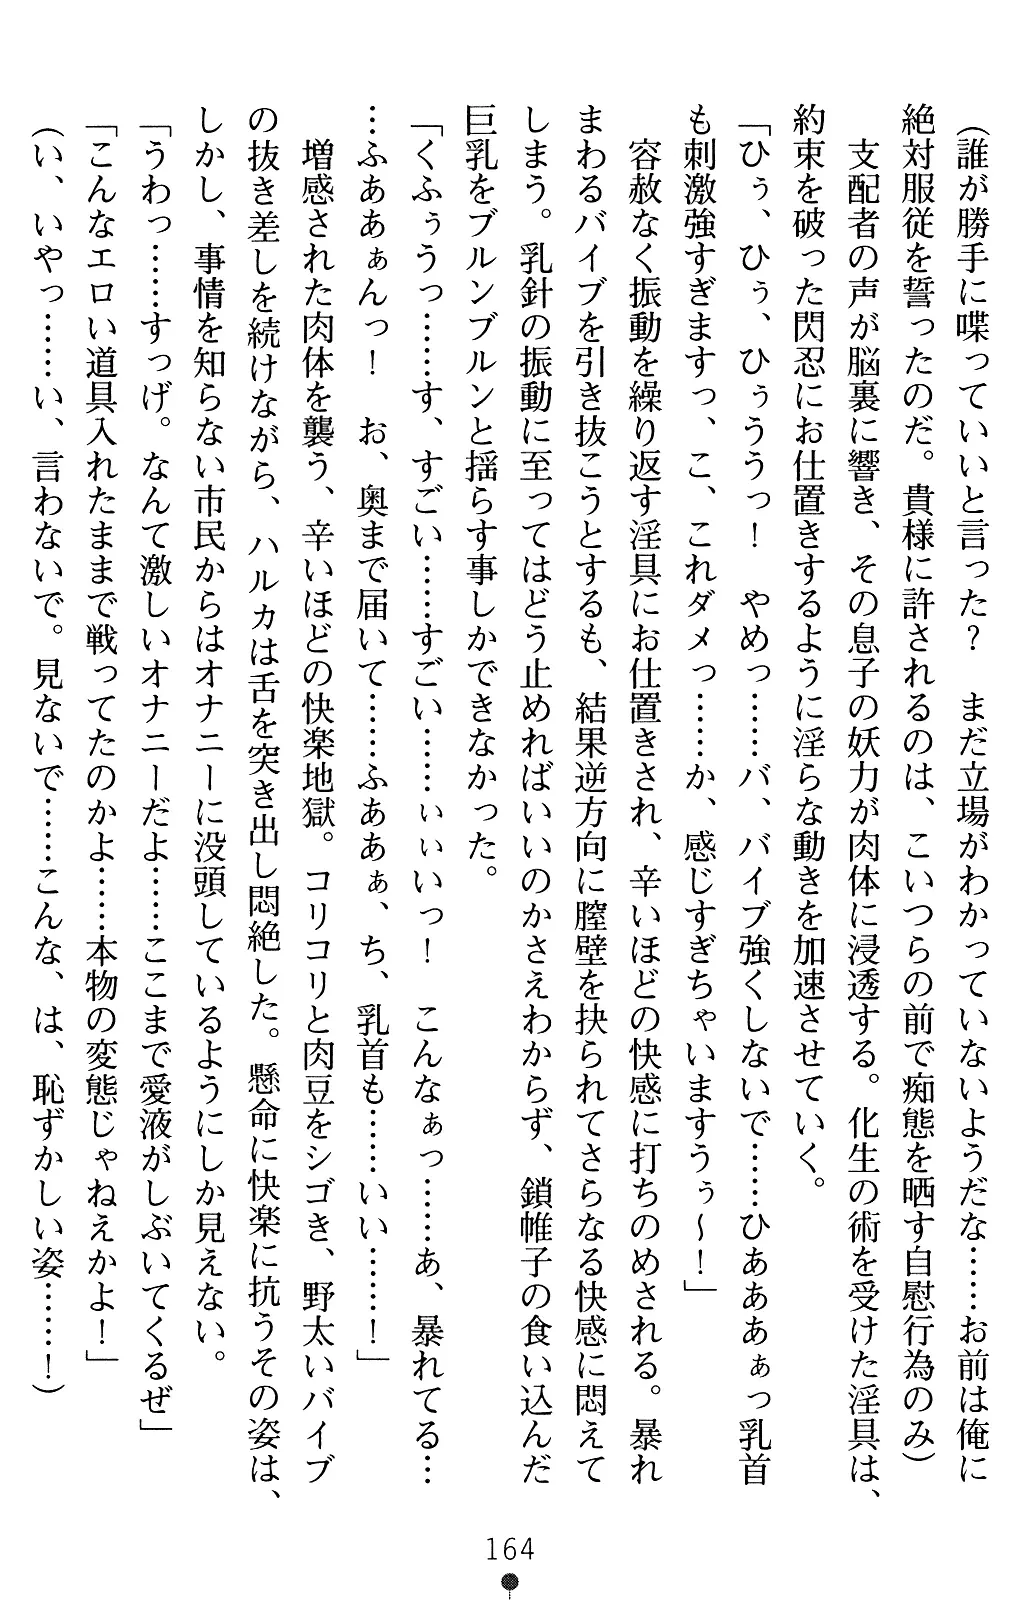 （誰が勝手に喋っていいと言った？　まだ立場がわかっていないようだな……お前は俺に
絶対服従を誓ったのだ。貴様に許されるのは、こいつらの前で痴態を晒す自慰行為のみ）
　支配者の声が脳裏に響き、その息子の妖力が肉体に浸透する。化生の術を受けた淫具は、
約束を破った閃忍にお仕置きするように淫らな動きを加速させていく。
「ひぅ、ひぅ、ひぅううっ！　やめっ……バ、バイブ強くしないで……ひあああぁっ乳首
も刺激強すぎますっ、こ、これダメっ……か、感じすぎちゃいますうぅ～！」
　容赦なく振動を繰り返す淫具にお仕置きされ、辛いほどの快感に打ちのめされる。暴れ
まわるバイブを引き抜こうとするも、結果逆方向に膣壁を抉られてさらなる快感に悶えて
しまう。乳針の振動に至ってはどう止めればいいのかさえわからず、鎖帷子の食い込んだ
巨乳をブルンブルンと揺らす事しかできなかった。
「くふぅうっ……す、すごい……すごい……ぃぃいっ！　こんなぁっ……あ、暴れてる…
…ふああぁんっ！　お、奥まで届いて……ふああぁ、ち、乳首も……いい……！」
　増感された肉体を襲う、辛いほどの快楽地獄。コリコリと肉豆をシゴき、野太いバイブ
の抜き差しを続けながら、ハルカは舌を突き出し悶絶した。懸命に快楽に抗うその姿は、
しかし、事情を知らない市民からはオナニーに没頭しているようにしか見えない。
「うわっ……すっげ。なんて激しいオナニーだよ……ここまで愛液がしぶいてくるぜ」
「こんなエロい道具入れたままで戦ってたのかよ……本物の変態じゃねえかよ！」
（い、いやっ……い、言わないで。見ないで……こんな、は、恥ずかしい姿……！）
164